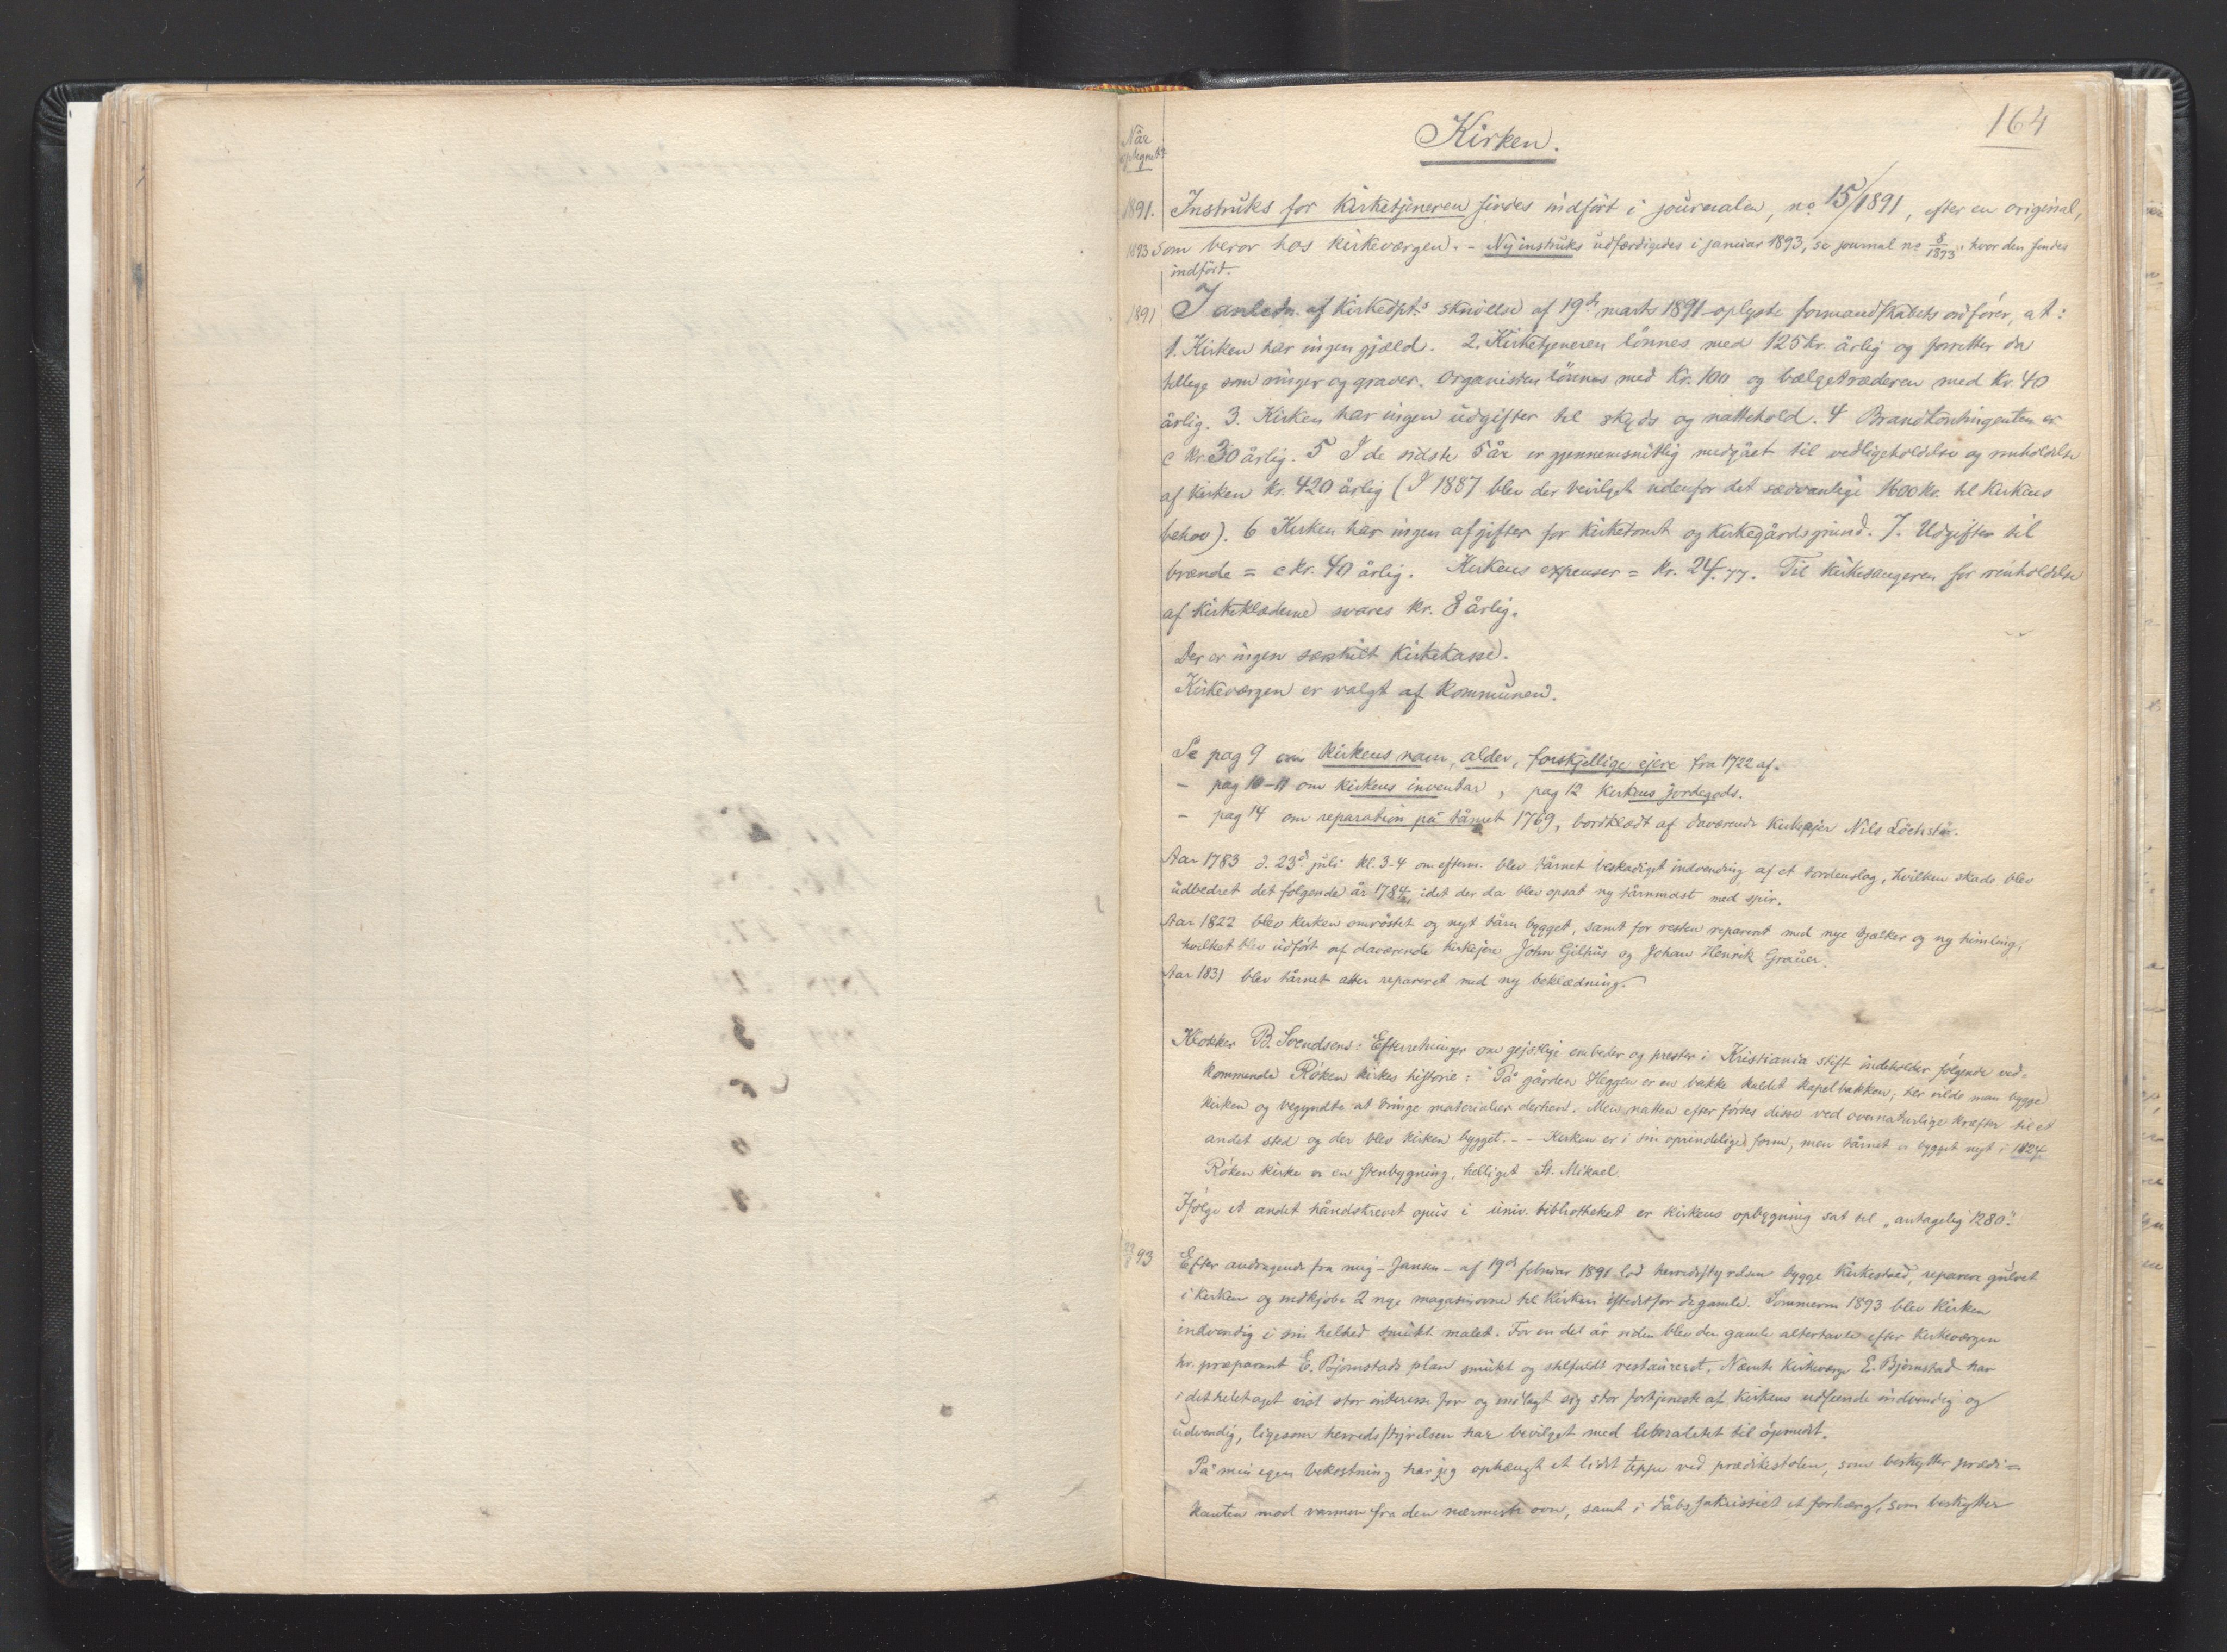 164
Når
optegnet?
Kirken.
1891. Instruks for kirketjeneren findes indført i journalen, no. 15/1891, efter en original,
1893 som beror hos kirkeværgen. - Ny instruks udfærdigedes i januar 1893, se journal no 8/1893, hvor den findes
indført.
1891 I anledn. af Kirkedpts skrivelse af 19de marts 1891 oplyste formandskabets ordfører, at:
1. Kirken har ingen gjæld. 2. Kirketjeneren lønnes med 125 kr. årlig og forretter da
tillige som ringer og graver. Organisten lønnes med Kr. 100 og bælgetræderen med Kr. 40
årlig. 3. Kirken har ingen udgifter til skyds og nattehold. 4 Brandkontingenten er
c kr 30 årlig. 5 I de sidste 5 år er gjennemsnitlig medgået til vedligeholdelse og renholdelse
af kirken kr. 420 årlig (I 1887 blev der bevilget udenfor det sædvanlige 1600 kr. til kirkens
behov). 6 Kirken har ingen afgifter for kirketomt og kirkegårdsgrund. 7. Udgifter til
brænde = c kr. 40 årlig. Kirkens expenser = kr. 24.77. Til kirkesangeren for renholdelse
af kirkeklæderne svares kr. 8 årlig.
Der er ingen særskilt kirkekasse.
Kirkeværgen er valgt af kommunen.
Se pag 9 om kirkens navn, alder, forskjellige ejere fra 1722 af.
- pag 10-11 om kirkens inventar, pag 12 kirkens jordegods.
- pag 14 om reparation på tårnet 1769, bordklædt af daværende kirkejer Nils
Aar 1783 d. 23d juli kl. 3-4 om efterm. blev tårnet beskadiget indvendig af et tordenslag, hvilken skade blev
udbedret det følgende år 1784, idet der da blev opsat ny tårnmast med spir.
Aar 1822 blev kirken omrøstet og nyt tårn bygget, samt for resten repareret med nye bjælker og ny himling,
hvilket blev udført af daværende kirkejere John Gilhus og Johan Henrik Grauer.
Aar 1831 blev tårnet atter repareret med ny beklædning.
Klokker B. Svendsens: Efterretninger om gejstlige embeder og prester i Kristiania stift indeholder følgende ved-
kommende Røken kirkes historie: "På gården Heggen er en bakke kaldet kapelbakken; her vilde man bygge
kirken og begyndte at bringe materialier derhen. Men natten efter førtes disse ved overnaturlige kræfter til et
andet sted og der blev kirken bygget. - - Kirken er i sin oprindelige form, men tårnet er bygget nyt i 1824
Røken kirke er en stenbygning, helliget St. Mikael.
Ifølge et andet håndskrevet opus i univ. bibliotheket er kirkens opbygning sat til "antagelig 1280".
93 Efter andragende fra mig - Jansen - af 19de februar 1891 lod herredsstyrelsen bygge kirkestald, reparere gulvet
i kirken og indkjøbe 2 nye magasinovne til kirken istedetfor de gamle. Sommeren 1893 blev kirken
indvendig i sin helhed smukt malet. For en del år siden blev den gamle altertavle efter kirkeværgen
hr. præparant E. Bjørnstads plan smukt og stilfuldt restaureret. Nævnte kirkeværge E. Bjørnstad har
i det hele taget vist stor interesse for og indlagt sig stor fortjeneste af kirkens udseende indvendig og
udvendig, ligesom herredsstyrelsen har bevilget med liberalitet til øjemedet.
På min egen bekostning har jeg ophængt et lidet teppe ved prædikestolen, som beskytter prædi-
kanten mod varmen fra den nærmeste ovn, samt i dåbssakristiet et forhæng, som beskytter